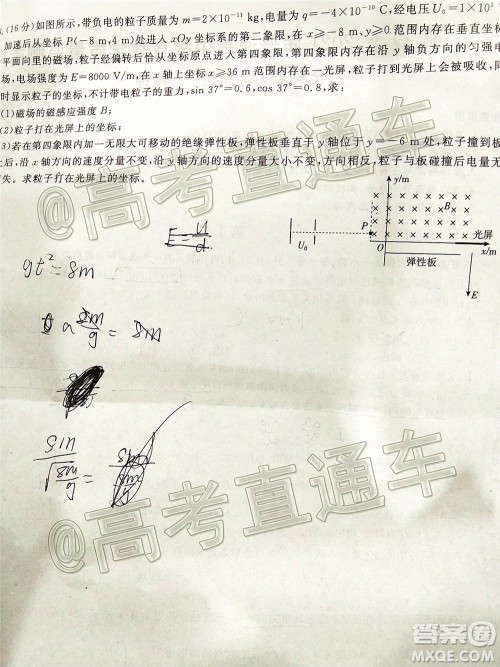 (16分)如图所示,带负电的粒子质量为m=2×10⁻¹¹ kg,电量为q=-4×10⁻¹⁰ C,经电压U₀=1×10
加速后从坐标P(-8 m,4 m)处进入xOy坐标系的第二象限,在x≥-8 m,y≥0范围内存在垂直坐标
平面向里的磁场,粒子经偏转后恰从坐标原点进入第四象限,第四象限内存在沿y轴负方向的匀强电
场,电场强度为E=8000 V/m,在x轴上坐标x≥36 m范围内存在一光屏,粒子打到光屏上会被吸收,同
时显示粒子的坐标,不计带电粒子的重力,sin 37°=0.6,cos 37°=0.8,求:
(1)磁场的磁感应强度B;
(2)粒子打在光屏上的坐标;
(3)若在第四象限内加一无限大可移动的绝缘弹性板,弹性板垂直于y轴位于y=-6 m处,粒子撞到板
上后,沿x轴方向的速度分量不变,沿y轴方向的速度分量大小不变,方向相反,粒子与板碰撞后电量无
损失。求粒子打在光屏上的坐标。
y/m
B
P
U₀
O
光屏
x/m
弹性板
E
E=U/d
at²=8m
a 8m/g = 8m
@高考直通车
@高考直通车
@高考直通车
答案圈
MXQE.COM